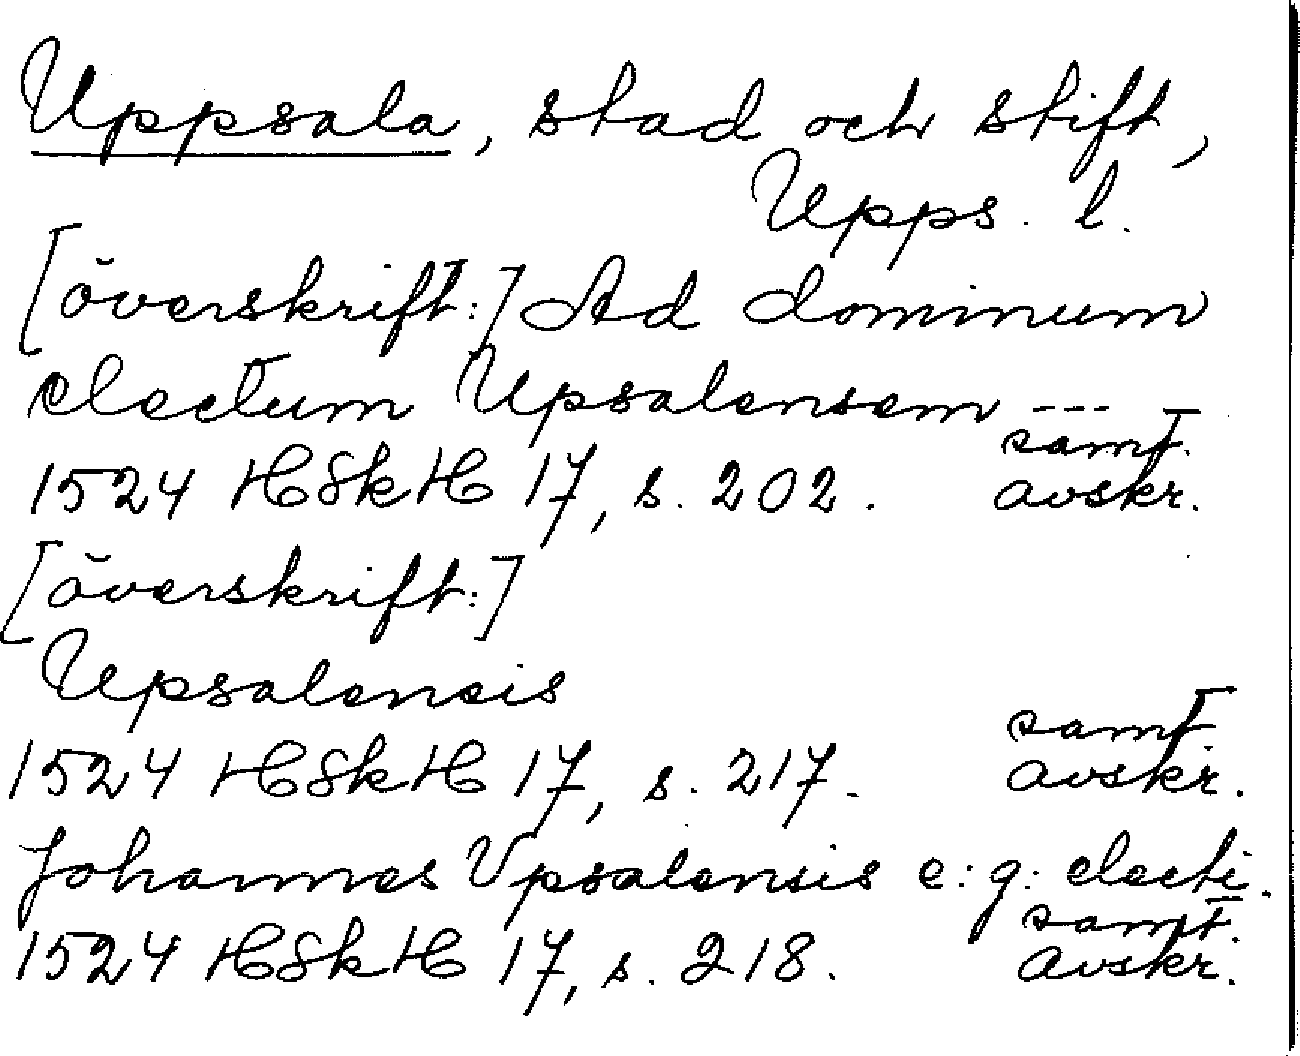 Uppsala, stad och stift,
Upps. l.
[överskrift:] Ad dominum
electum Upsalensem ---
1524 HSkH 17, s. 202. samt. avskr.
[överskrift:]
Upsalensis
1524 HSkH 17, s. 217. samt avskr.
Johannes Vpsalensis e: g: electi.
1524 HSkH 17, s. 218. samt. avskr.